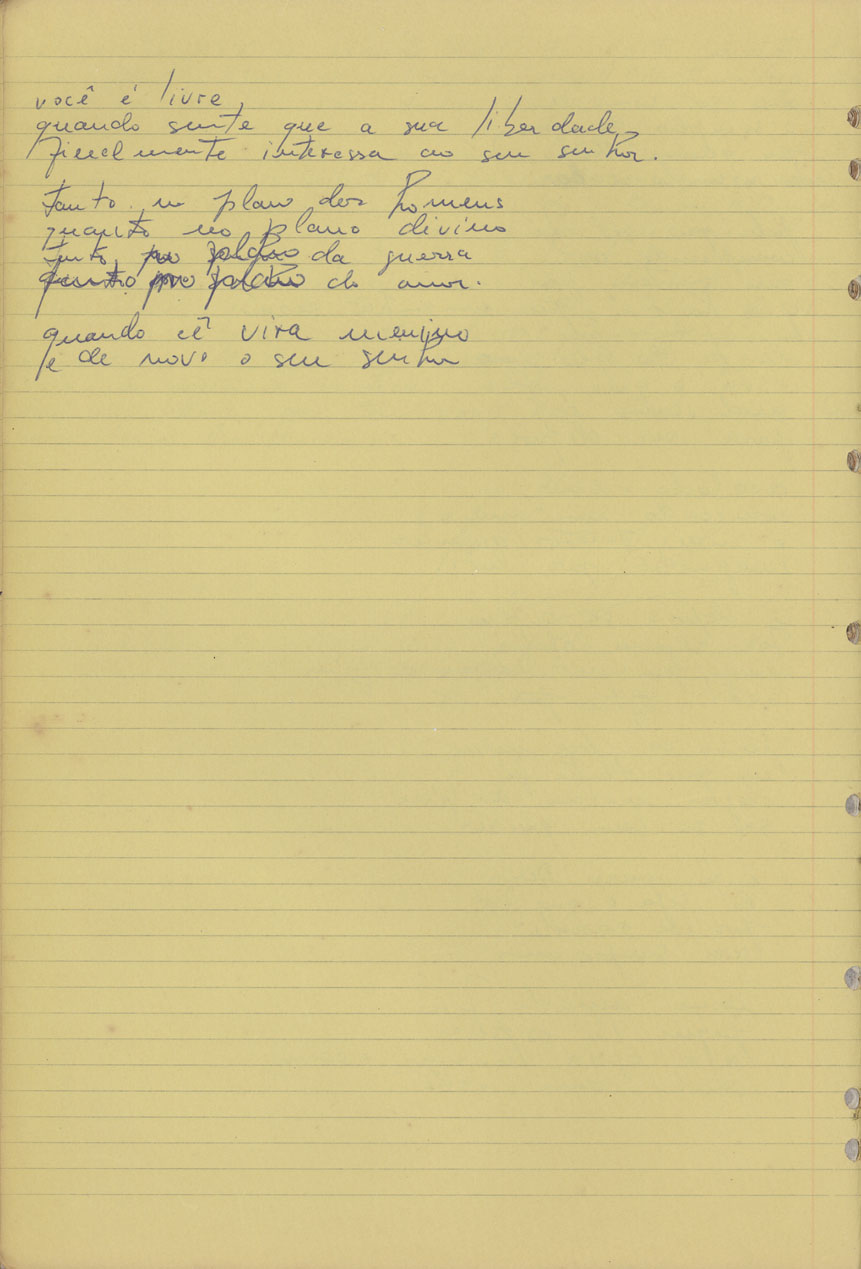 você é livre,
quando sente que a sua liberdade
finalmente interessa ao seu senhor.
Tanto no plano dos homens
quanto no plano divino
tanto no plano da guerra
quanto no plano do amor.
quando cê vira menino
e de novo o seu senhor